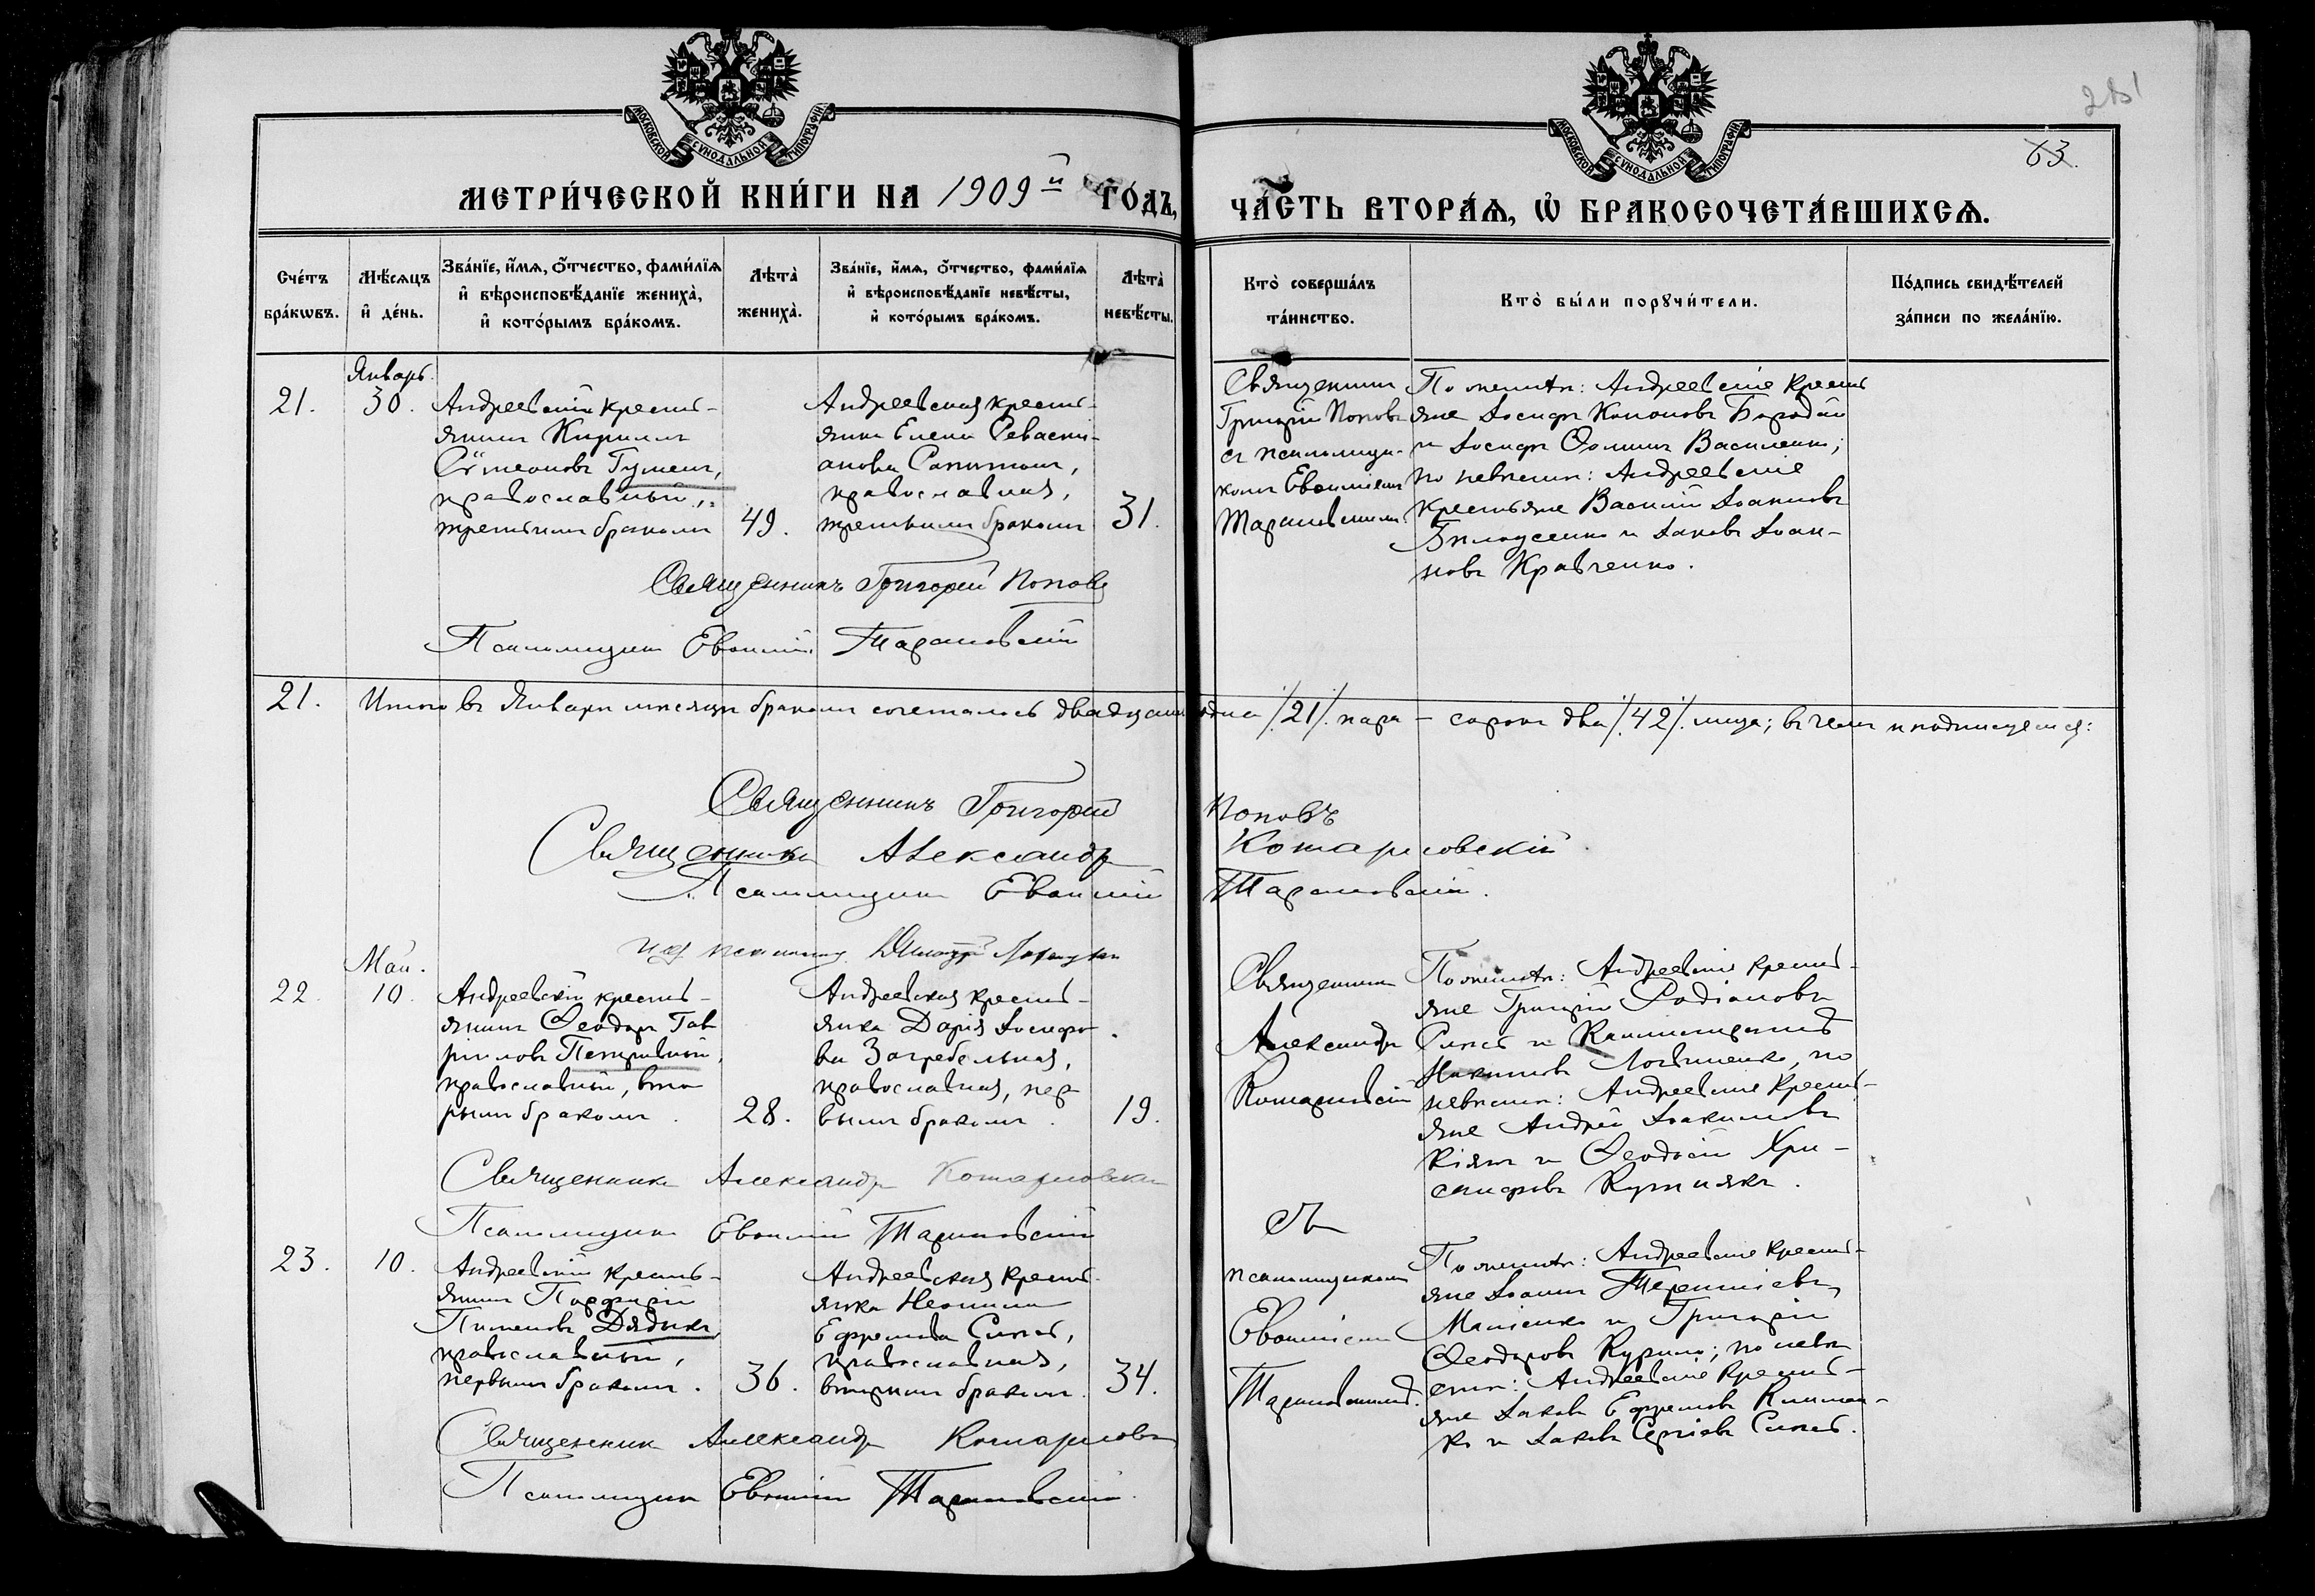 281
63.
МОСКОВСКОЙ СѴНОДАЛЬНОЙ ТИПОГРАФІИ
МОСКОВСКОЙ СѴНОДАЛЬНОЙ ТИПОГРАФІИ
МЕТРИ́ЧЕСКОЙ КНИ́ГИ НА 1909й ГО́ДЪ,
ЧА́СТЬ ВТОРА́Ѧ, Ѡ҆ БРАКОСОЧЕТА́ВШИХСѦ.
Сче́тъ бра́кѡвъ.
Мѣ́сѧцъ и҆ де́нь.
Зва́нїе, и҆́мѧ, ѻ҆́тчество, фами́лїѧ
и҆ вѣроисповѣ́данїе жениха̀,
и҆ кото́рымъ бра́комъ.
Лѣта̀ жениха̀.
Зва́нїе, и҆́мѧ, ѻ҆́тчество, фами́лїѧ
и҆ вѣроисповѣ́данїе невѣ́сты,
и҆ кото́рымъ бра́комъ.
Лѣта̀ невѣ́сты.
Кто̀ соверша́лъ
та́инство.
Кто̀ бы́ли порꙋчи́тели.
По́дпись свидѣ́телей
за́писи по жела́нїю.
Январь.
21.
30.
Андреевскій кресть-
янинъ Кириллъ
Сѵмеоновъ Гуменъ,
православный,
третьимъ бракомъ
49.
Андреевская кресть-
янка Елена Севасті-
анова
православная,
третьимъ бракомъ
31.
Священникъ
Григорій Поповъ
съ псаломщи-
комъ Евѳиміемъ
Тарановскимъ.
По женихѣ: Андреевскіе кресть
яне Іосифъ Кононовъ Бородай
и Іосифъ Ѳоминъ Василенко;
по невѣстѣ: Андреевскіе
крестьяне Василій Іоанновъ
Бѣлоусенко и Іаковъ Іоан-
новъ Кравченко.
Священникъ Григорій Поповъ
Псаломщикъ Евѳимій Тарановскій
21.
Итого въ Январѣ мѣсяцѣ бракомъ сочеталось двадцать одна /21/ пара – сорокъ два /42/ лица; въ чемъ и подписуемся:
Священникъ Григорій Поповъ
Священникъ Александръ Котарловскій
Псаломщикъ Евѳимій Тарановскій.
Май.
22.
10.
Андреевскій кресть-
янинъ Ѳеодоръ Гав
ріиловъ Петривный,
православный, вто
рымъ бракомъ.
28.
Андреевская кресть-
янка Дарія Іосифо-
ва Загребельная,
православная, пер
вымъ бракомъ.
19.
Священникъ
Александръ
По женихѣ: Андреевскіе кресть-
яне Григорій Родіоновъ
Синьо и
Логвиненко, по
невѣстѣ: Андреевскіе кресть-
яне Андрей Іоакимовъ
Кіянъ и Ѳеодосій Хри-
санфовъ
Священникъ Александръ Котарловскій
Псаломщикъ Евѳимій Тарановскій
съ
23.
10.
Андреевскій кресть-
янинъ Порфирій
Пименовъ Дядыкъ,
православный,
первымъ бракомъ.
36.
Андреевская кресть-
янка Неонила
Ефремова Синьо,
православная,
вторымъ бракомъ.
34.
псаломщикомъ
Евѳиміемъ
Тарановскимъ.
По женихѣ: Андреевскіе кресть-
яне Іоаннъ Терентіевъ
и Григорій
Ѳеодоровъ Курило; по невѣ
стѣ: Андреевскіе кресть-
яне Іаковъ Ефремовъ Климен-
ко и Іаковъ Сергіевъ Синьо.
Священникъ Александръ Котарловскій
Псаломщикъ Евѳимій Тарановскій.